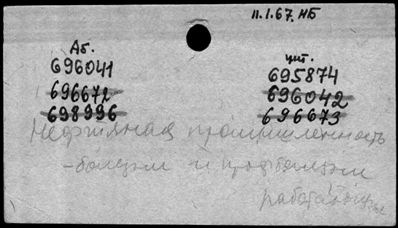 11.1.67. НБ
Аб. цит.
696041 695874
696672 696042
698996 696673
Нефтяная промышленность
- болезни и профболезни
работающих